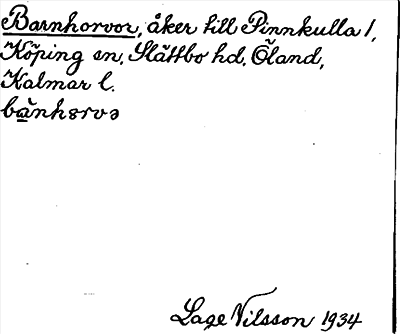 Barnhorvor, åker till Pinnkulla 1,
Köping sn, Slättbo hd, Öland,
Kalmar l.
bànhørvə
Lage Nilsson 1934